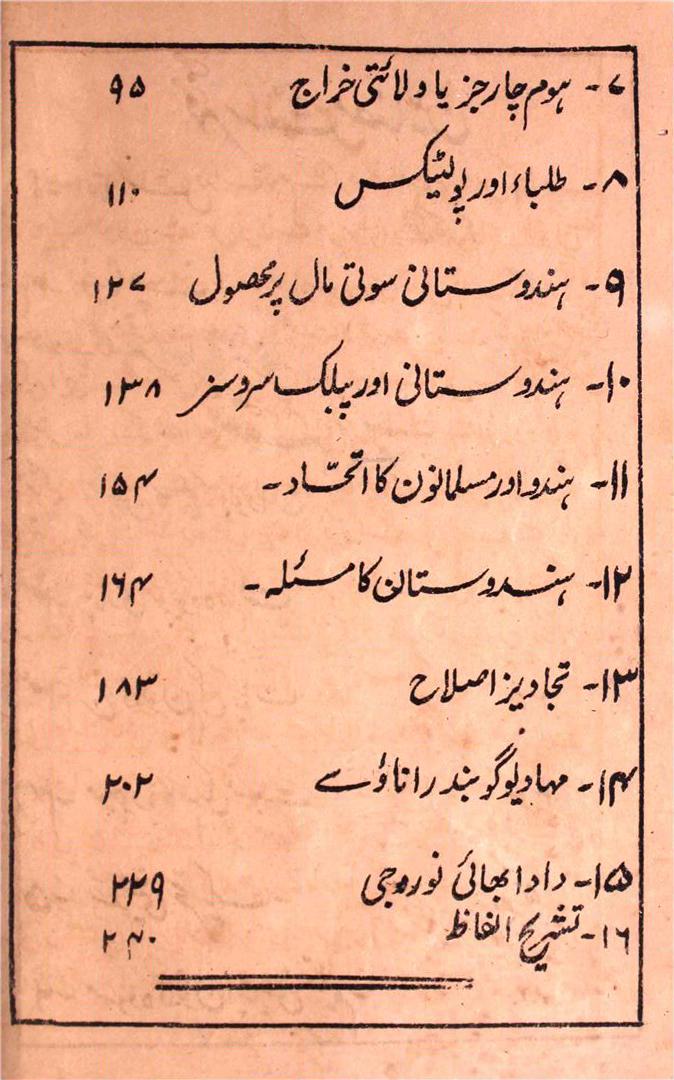 ۷- ہوم چارجز یا ولائتی خراج ۹۵
۸- طلباء اور پولیٹیکس ۱۱۰
۹- ہندوستانی سوتی مال پر محصول ۱۲۷
۱۰- ہندوستانی اور پبلک سروسز ۱۳۸
۱۱- ہندو اور مسلمانوں کا اتحّاد- ۱۵۴
۱۲- ہندوستان کا مسئلہ- ۱۶۴
۱۳- تجاویز اصلاح ۱۸۳
۱۴- مہادیو گوبند راناڈے ۲۰۲
۱۵- دادا بھائی نوروجی ۲۲۹
۱۶- تشریح الفاظ ۲۴۰